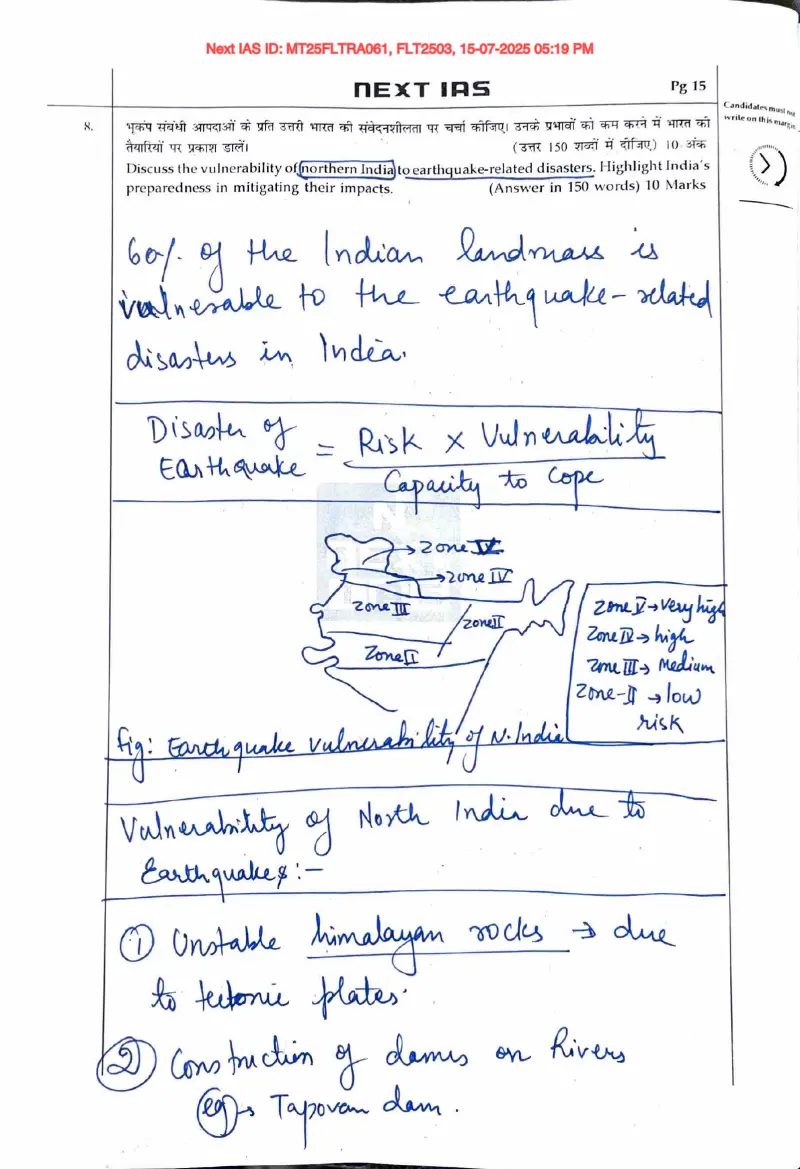 Next IAS ID: MT25FLTRA061, FLT2503, 15-07-2025 05:19 PM
NEXT IAS
Pg 15
Candidates must not
write on this margin
8.
भूकंप संबंधी आपदाओं के प्रति उत्तरी भारत की संवेदनशीलता पर चर्चा कीजिए। उनके प्रभावों को कम करने में भारत की
तैयारियों पर प्रकाश डालें। (उत्तर 150 शब्दों में दीजिए) 10 अंक
Discuss the vulnerability of northern India to earthquake-related disasters. Highlight India's
preparedness in mitigating their impacts. (Answer in 150 words) 10 Marks
60% of the Indian landmass is
vulnerable to the earthquake-related
disasters in India.
Disaster of
Earthquake = Risk x Vulnerability
Capacity to Cope
→ Zone V
→ Zone IV
Zone III
Zone II
Zone II
Zone V → Very high
Zone IV → high
Zone III → Medium
Zone-II → low
risk
fig: Earthquake vulnerability of N. India
Vulnerability of North India due to
Earthquakes :-
① Unstable himalayan rocks → due
to tectonic plates.
② Construction of dams on Rivers
eg → Tapovan dam.